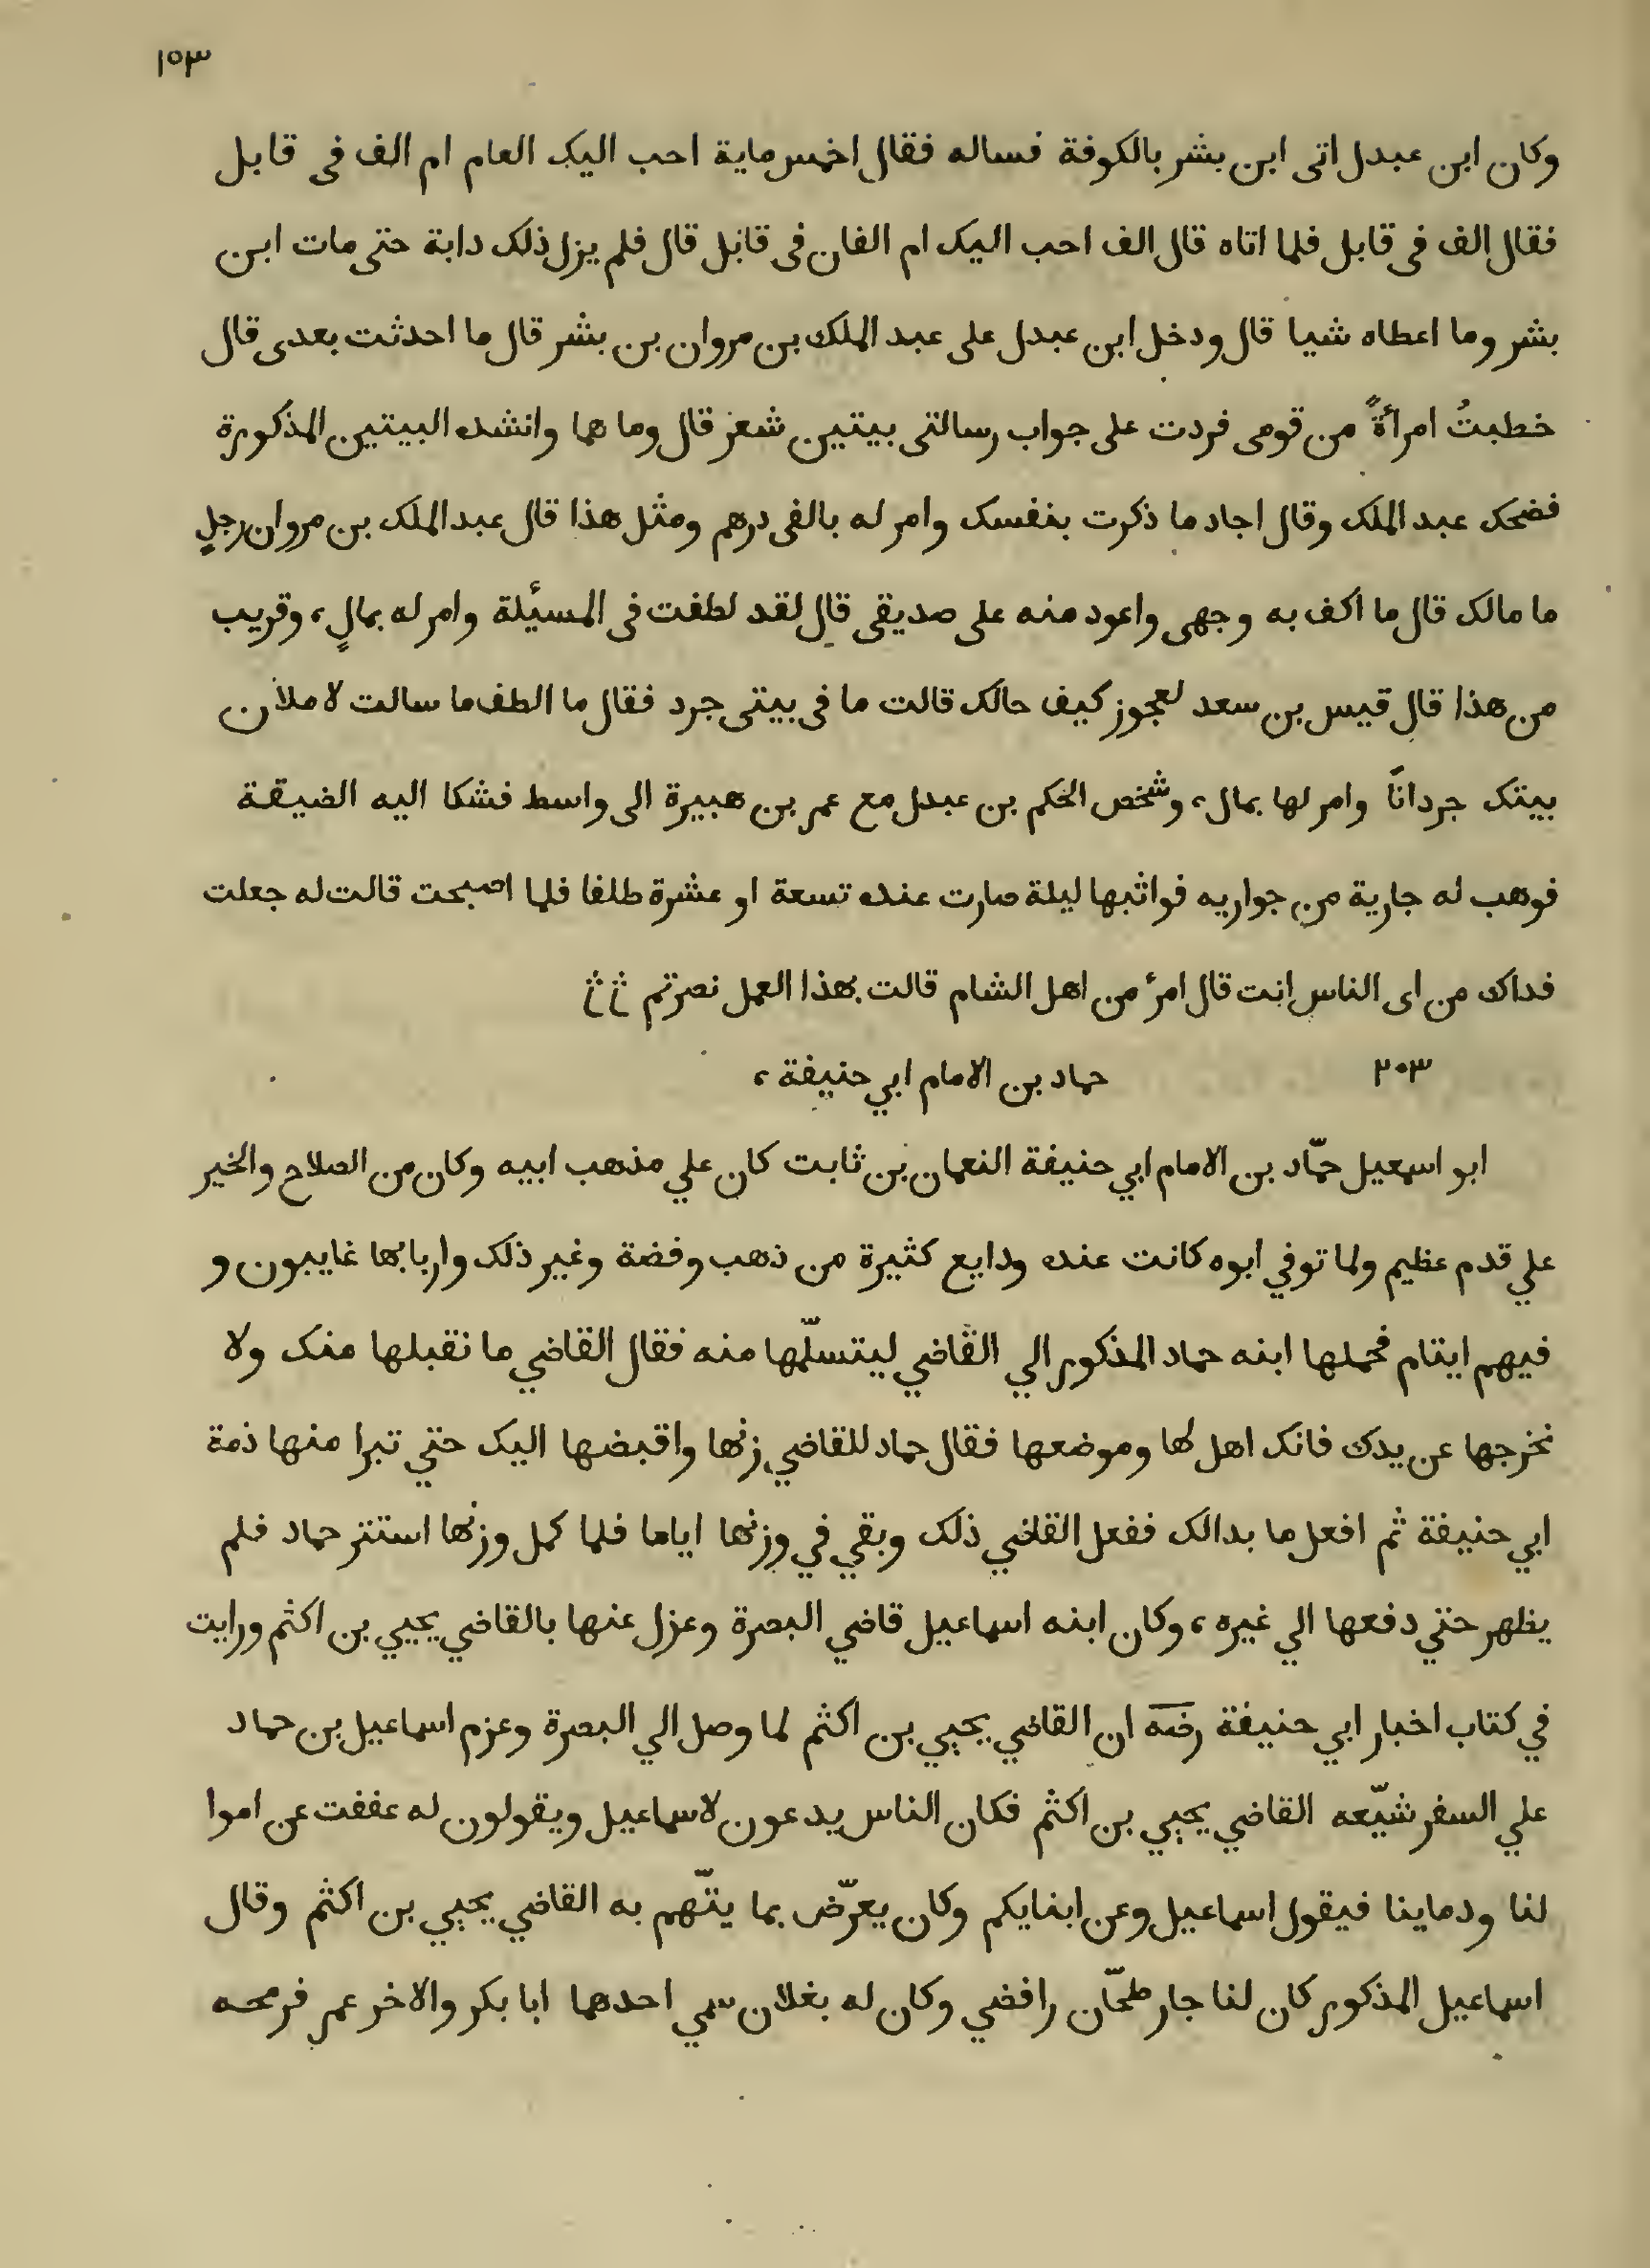 ١٥٣
وكان ابن عبدل اتى ابن بشر بالكوفة فساله فقال اخمس ماية احب اليك العام ام الف فى قابل
فقال الف فى قابل فلما اتاه قال الف احب اليك ام الفان فى قابل قال فلم يزل ذلك دابة حتى مات ابن
بشر وما اعطاه شيا قال ودخل ابن عبدل على عبد الملك بن مروان بن بشر قال ما احدثت بعدى قال
خطبتُ امرأةً من قومى فردت على جواب رسالتى ببيتين شعر قال وما هما وانشده البيتين المذكورة
فضحك عبد الملك وقال اجاد ما ذكرت بنفسك وامر له بالفى درهم ومثل هذا قال عبد الملك بن مروان رجلٍ
ما مالك قال ما اكف به وجهى واعود منه على صديقى قال لقد لطفت فى المسئلة وامر له بمالٍ، وقريب
من هذا قال قيس بن سعد لعجوز كيف حالك قالت ما فى بيتى جرد فقال ما الطف ما سالت لاملأن
بيتك جرداناً وامر لها بمال، وشخص الحكم بن عبدل مع عمر بن هبيرة الى واسط فشكا اليه الضيقة
فوهب له جارية من جواريه فواثبها ليلة صارت عنده تسعة او عشرة طلقا فلما اصبحت قالت له جعلت
فداك من اى الناس انت قال امرٔ من اهل الشام قالت بهذا العمل نصرتم
٢٠٣ حماد بن الامام ابي حنيفة،
ابو اسمعيل حمّاد بن الامام ابي حنيفة النعمان بن ثابت كان علي مذهب ابيه وكان من الصلاح والخير
علي قدم عظيم ولما توفي ابوه كانت عنده ودايع كثيرة من ذهب وفضة وغير ذلك واربابها غايبون و
فيهم ايتام فحملها ابنه حماد المذكور الي القاضي ليتسلّمها منه فقال القاضي ما نقبلها منك ولا
نخرجها عن يدك فانك اهل لها وموضعها فقال حماد للقاضي زنها واقبضها اليك حتي تبرا منها ذمة
ابي حنيفة ثم افعل ما بدالك ففعل القاضي ذلك وبقي في وزنها اياما فلما كمل وزنها استتر حماد فلم
يظهر حتي دفعها الي غيره، وكان ابنه اسماعيل قاضي البصرة وعزل عنها بالقاضي يحيي بن اكثم ورايت
في كتاب اخبار ابي حنيفة رضه ان القاضي يحيي بن اكثم لما وصل الي البصرة وعزم اسماعيل بن حماد
علي السفر شيّعه القاضي يحيي بن اكثم فكان الناس يدعون لاسماعيل ويقولون له عففت عن اموا
لنا ودماينا فيقول اسماعيل وعن ابنايكم وكان يعرّض بما يتّهم به القاضي يحيي بن اكثم وقال
اسماعيل المذكور كان لنا جار طحّان رافضي وكان له بغلان سمي احدهما ابا بكر والاخر عمر فرمحه